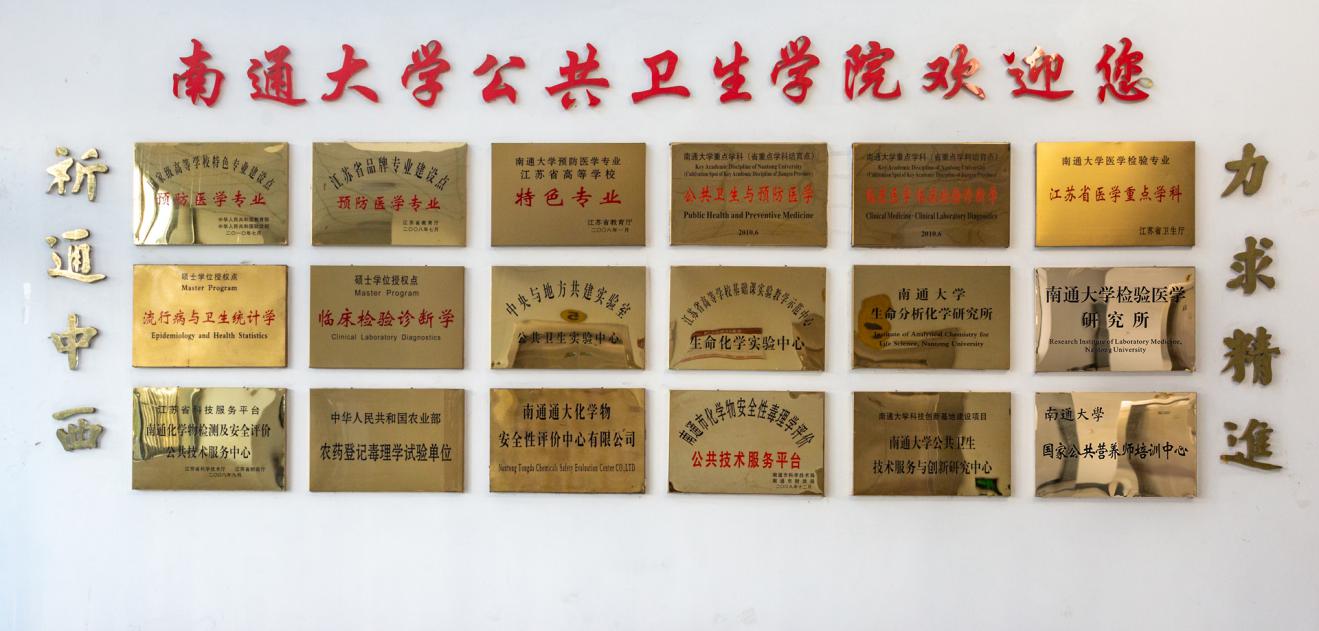 南通大学公共卫生学院欢迎您
祈通中西
力求精進
国家级高等学校特色专业建设点
预防医学专业
中华人民共和国教育部
中华人民共和国财政部
二〇一〇年七月
江苏省品牌专业建设点
预防医学专业
江苏省教育厅
二〇〇八年七月
南通大学预防医学专业
江苏省高等学校
特色专业
江苏省教育厅
二〇〇八年一月
南通大学重点学科(省重点学科培育点)
Key Academic Discipline of Nantong University
(Cultivation Spot of Key Academic Discipline of Jiangsu Province)
公共卫生与预防医学
Public Health and Preventive Medicine
2010.6
南通大学重点学科(省重点学科培育点)
Key Academic Discipline of Nantong University
(Cultivation Spot of Key Academic Discipline of Jiangsu Province)
临床医学·临床检验诊断学
Clinical Medicine·Clinical Laboratory Diagnostics
2010.6
南通大学医学检验专业
江苏省医学重点学科
江苏省卫生厅
硕士学位授权点
Master Program
流行病与卫生统计学
Epidemiology and Health Statistics
硕士学位授权点
Master Program
临床检验诊断学
Clinical Laboratory Diagnostics
中央与地方共建实验室
公共卫生实验中心
江苏省高等学校基础课实验教学示范中心
生命化学实验中心
南通大学
生命分析化学研究所
Institute of Analytical Chemistry for
Life Science, Nantong University
南通大学检验医学
研究所
Research Institute of Laboratory Medicine,
Nantong University
江苏省科技服务平台
南通化学物检测及安全评价
公共技术服务中心
江苏省科学技术厅 江苏省财政厅
二〇〇八年九月
中华人民共和国农业部
农药登记毒理学试验单位
南通通大化学物
安全性评价中心有限公司
Nantong Tongda Chemicals Safety Evaluation Center CO.,LTD
南通市化学物安全性毒理学评价
公共技术服务平台
南通市科学技术局
南通市财政局
二〇〇八年十二月
南通大学科技创新基地建设项目
南通大学公共卫生
技术服务与创新研究中心
南通大学
国家公共营养师培训中心